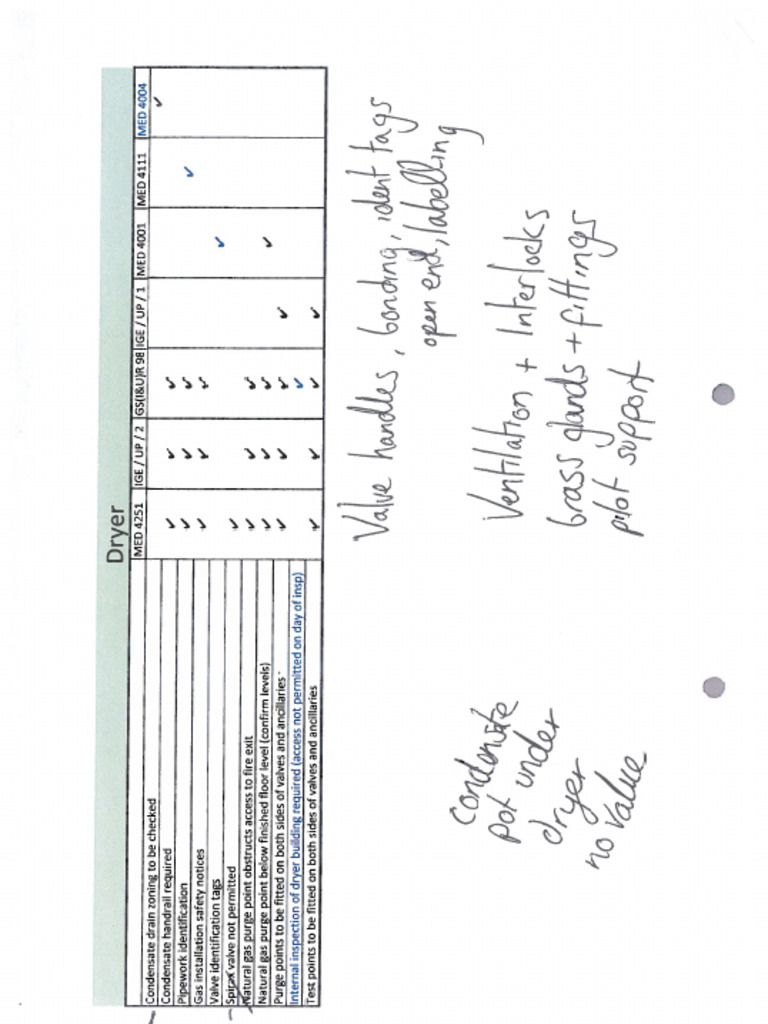 Dryer
MED 4251 IGE / UP / 2 GS(I&U)R 98 IGE / UP / 1 MED 4001 MED 4111 MED 4004
Condensate drain zoning to be checked
Condensate handrail required
Pipework identification
Gas installation safety notices
Valve identification tags
Spirax valve not permitted
Natural gas purge point obstructs access to fire exit
Natural gas purge point below finished floor level (confirm levels)
Purge points to be fitted on both sides of valves and ancillaries
Internal inspection of dryer building required (access not permitted on day of insp)
Test points to be fitted on both sides of valves and ancillaries
Valve handles, bonding, ident tags
open end, labelling
Condensate
pot under
dryer
no Valve
Ventilation + Interlocks
brass glands + fittings
pilot support